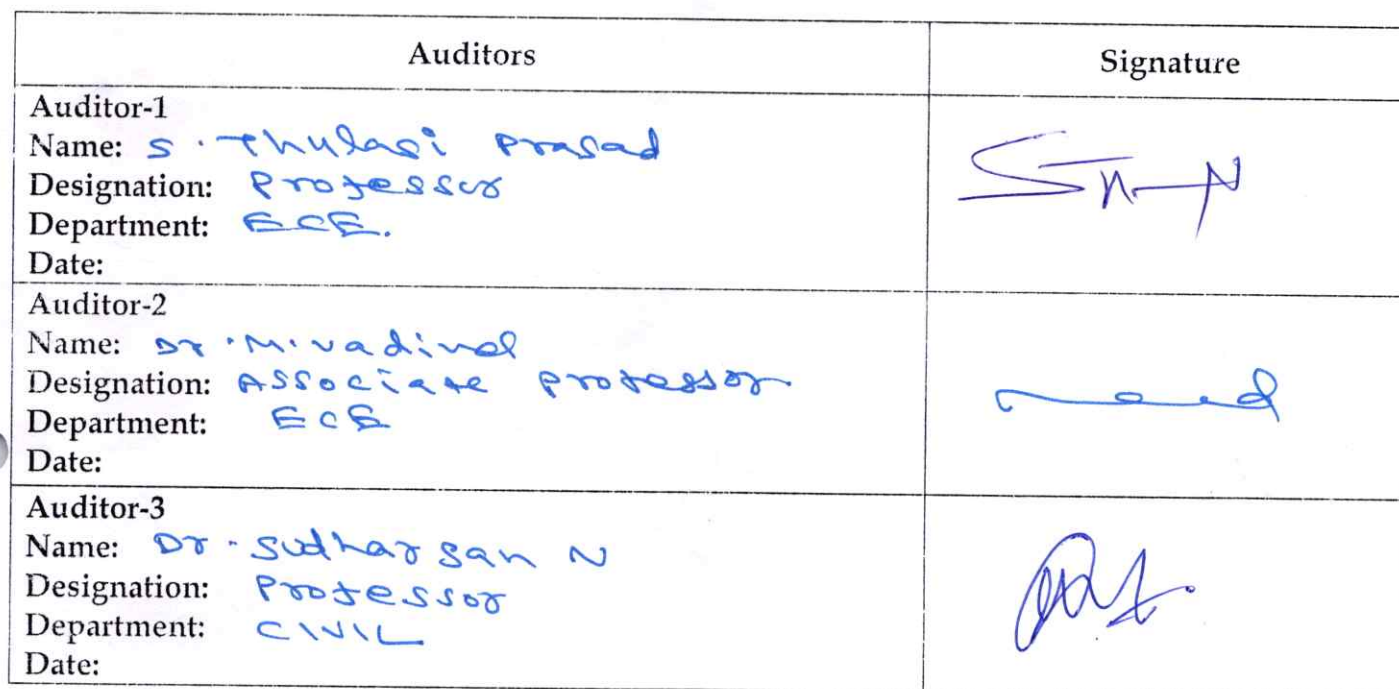 Auditors
Signature
Auditor-1
Name: S. Thulasi Prasad
Designation: Professor
Department: ECE.
Date:
Auditor-2
Name: Dr. M. Vadivel
Designation: Associate Professor
Department: ECE
Date:
Auditor-3
Name: Dr. Sudharsan N
Designation: Professor
Department: CIVIL
Date: